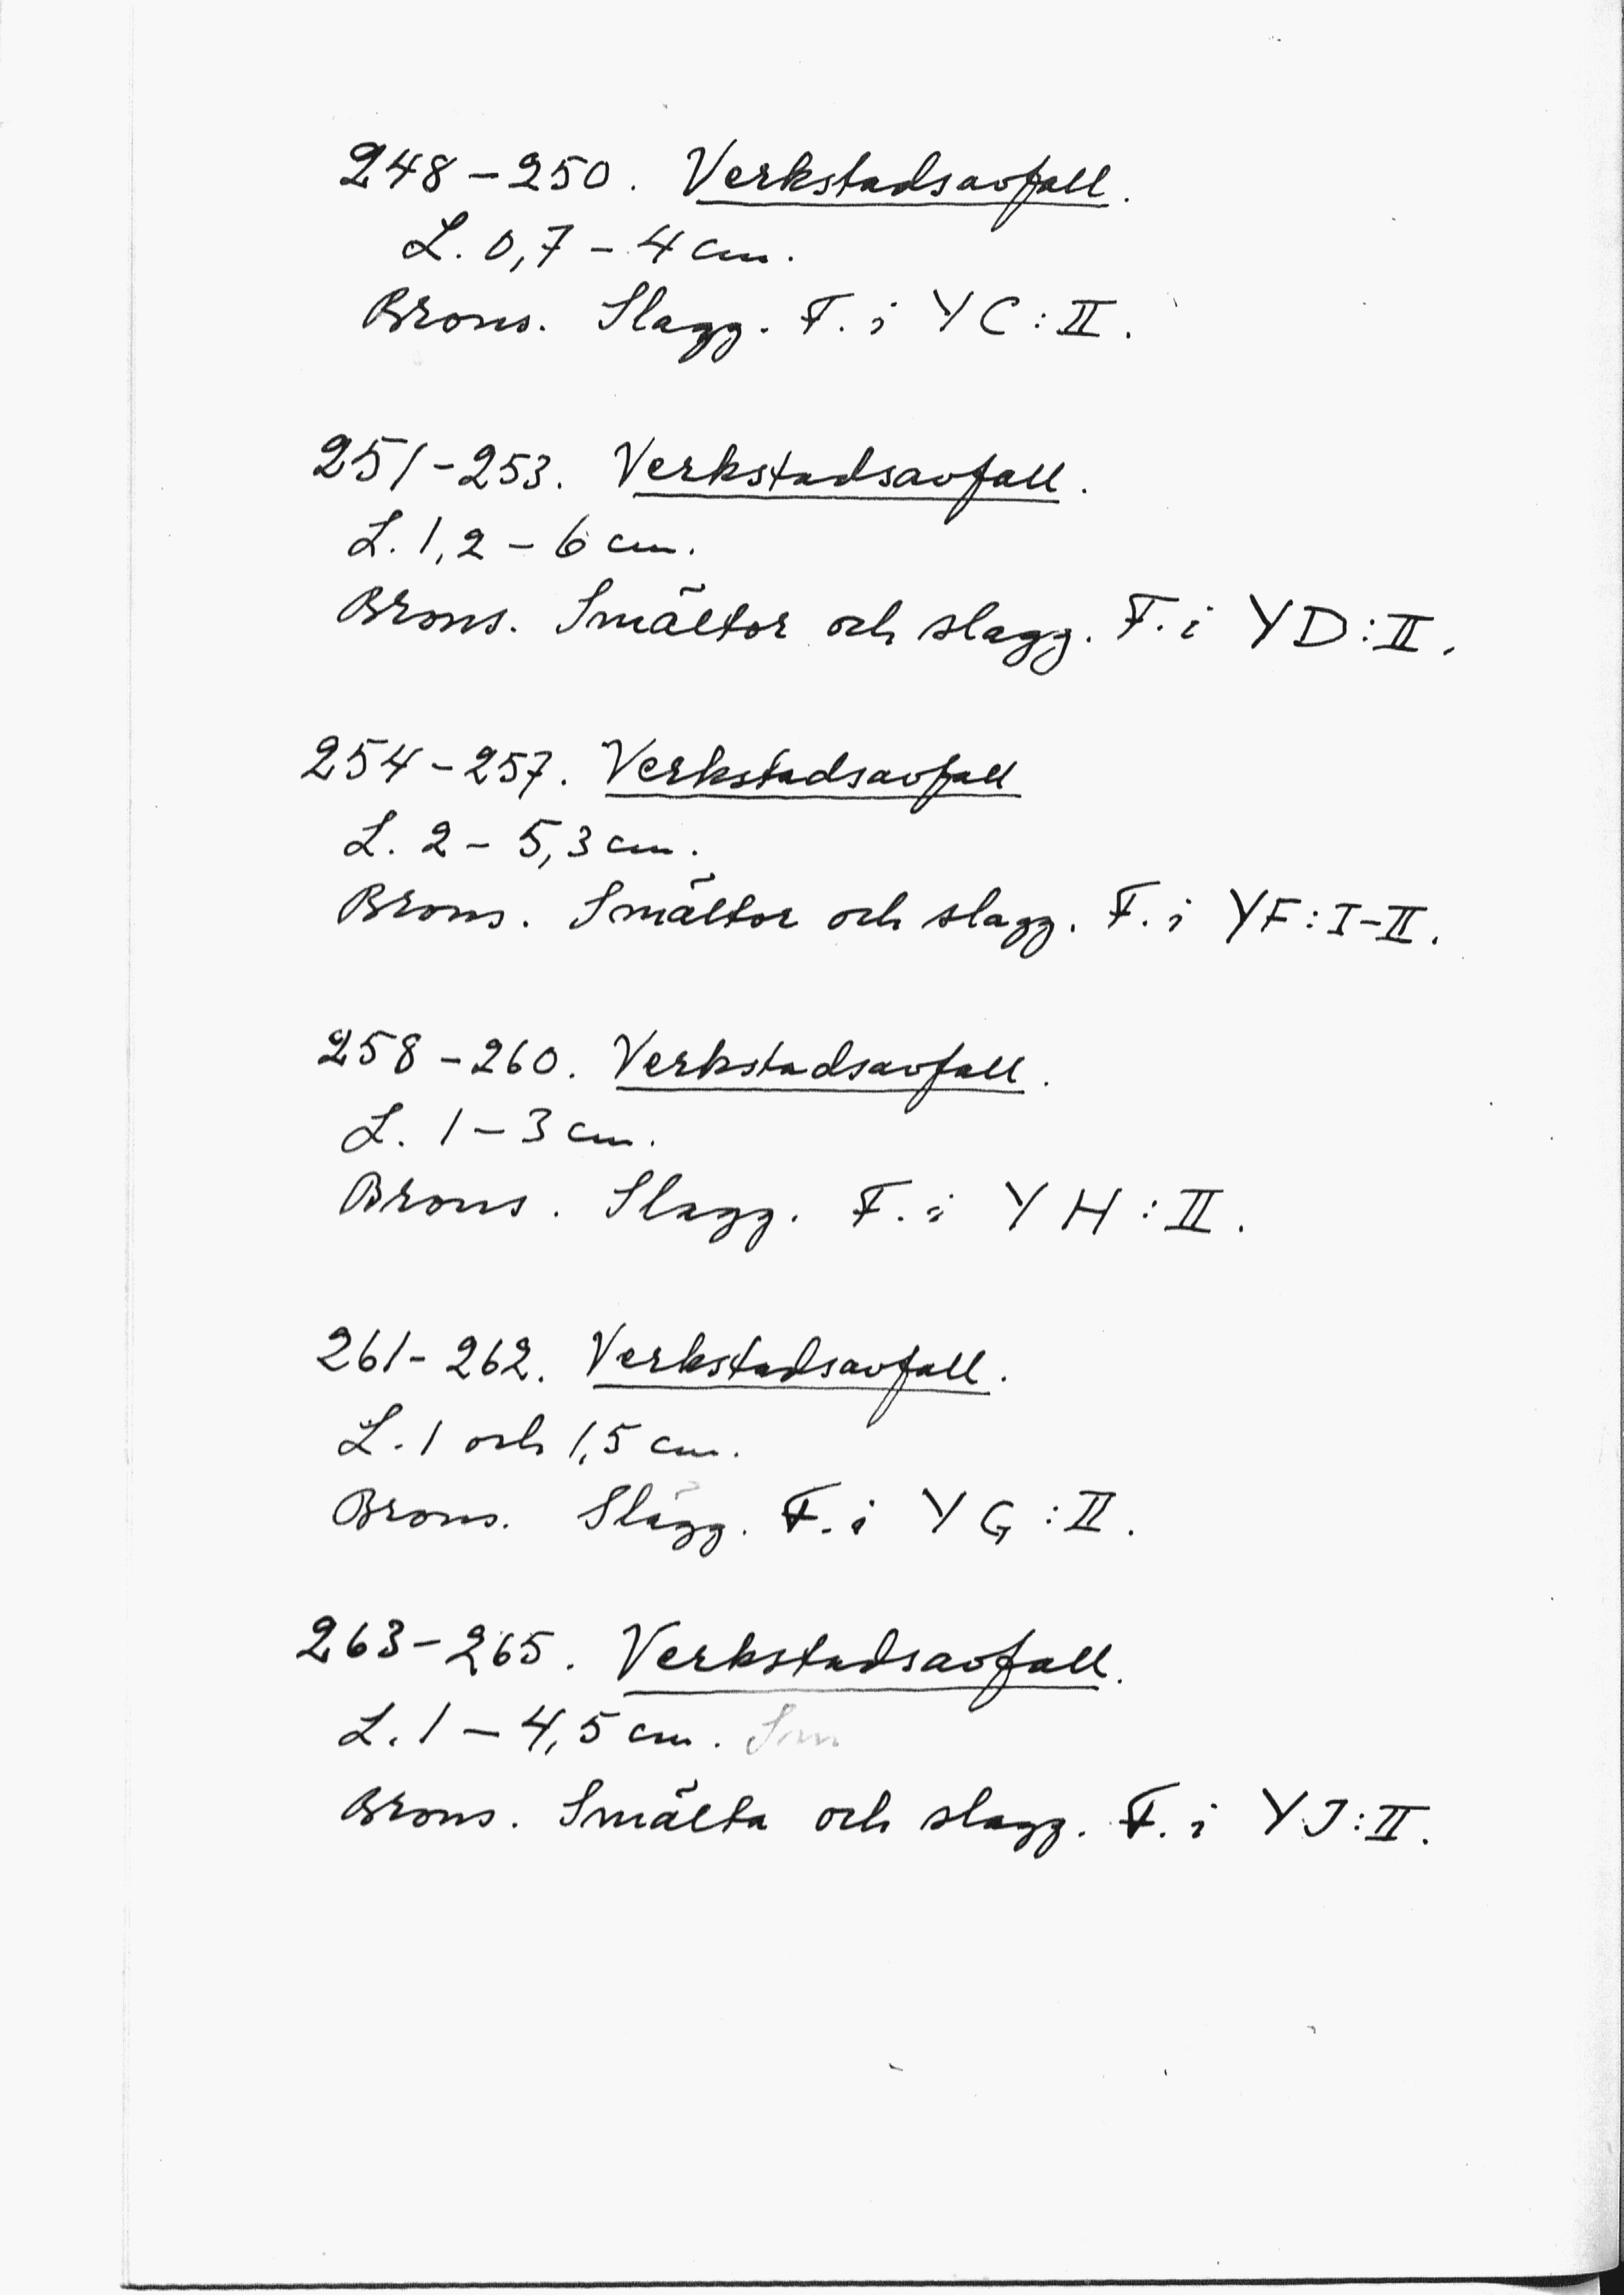 248-250. Verkstadsavfall.
L. 0,7 - 4 cm.
Brons. Slagg. F. i YC:II.
251-253. Verkstadsavfall.
L. 1,2 - 6 cm.
Brons. Smältor och slagg. F. i YD:II.
254-257. Verkstadsavfall
L. 2 - 5,3 cm.
Brons. Smältor och slagg. F. i YF:I-II.
258-260. Verkstadsavfall.
L. 1 - 3 cm.
Brons. Slagg. F. i YH:II.
261-262. Verkstadsavfall.
L. 1 och 1,5 cm.
Brons. Slagg. F. i YG:II.
263-265. Verkstadsavfall.
L. 1 - 4,5 cm. Sm
Brons. Smälta och slagg. F. i YJ:II.